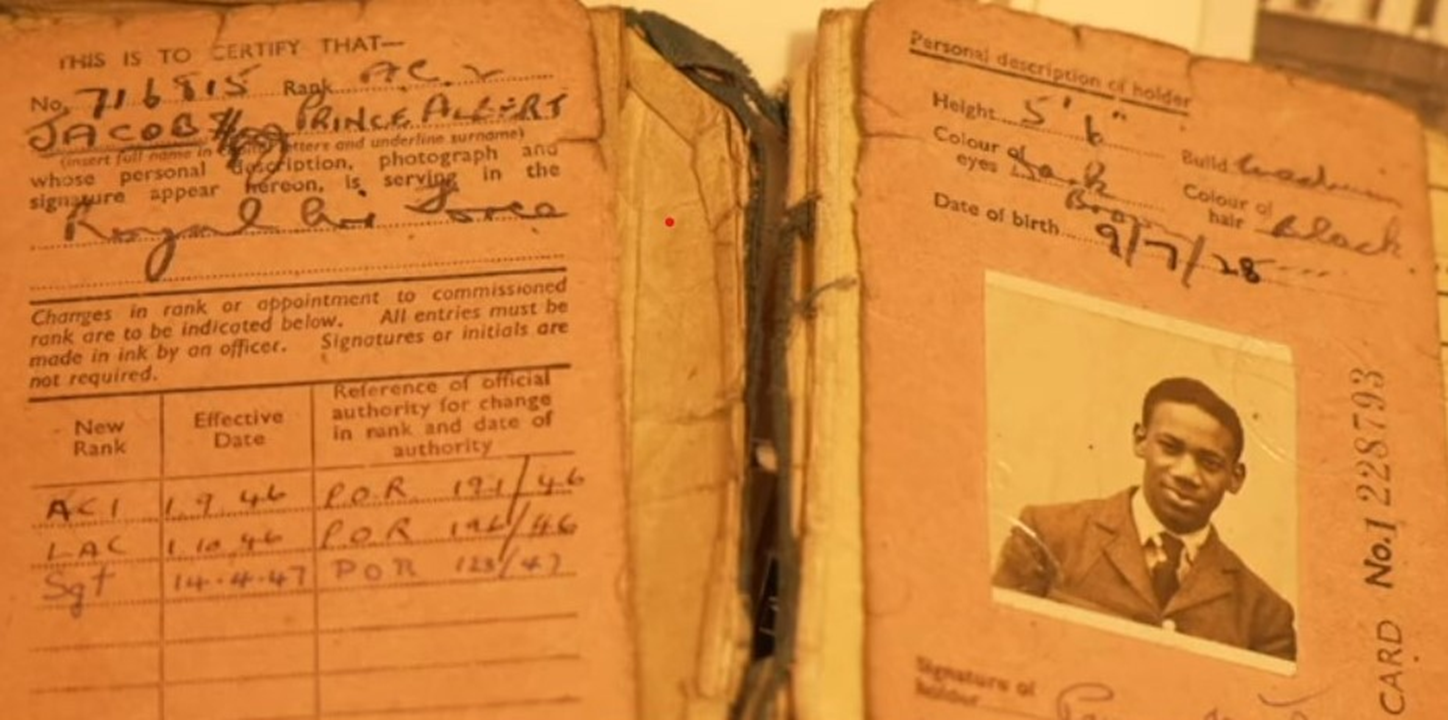 THIS IS TO CERTIFY THAT—
No. 716815 Rank AC 2
JACOB PRINCE ALBERT
(insert full name in letters and underline surname)
whose personal description, photograph and
signature appear hereon, is serving in the
Royal Air Force
Changes in rank or appointment to commissioned
rank are to be indicated below. All entries must be
made in ink by an officer. Signatures or initials are
not required.
New Rank
Effective Date
Reference of official authority for change in rank and date of authority
AC1 1.9.46 P.O.R. 191/46
LAC 1.10.46 P.O.R 196/46
Sgt 14.4.47 POR 123/47
Personal description of holder
Height 5' 6"
Build Medium
Colour of eyes Dark Brown
Colour of hair Black
Date of birth 9/7/28
CARD No.1 228793
Signature of
holder